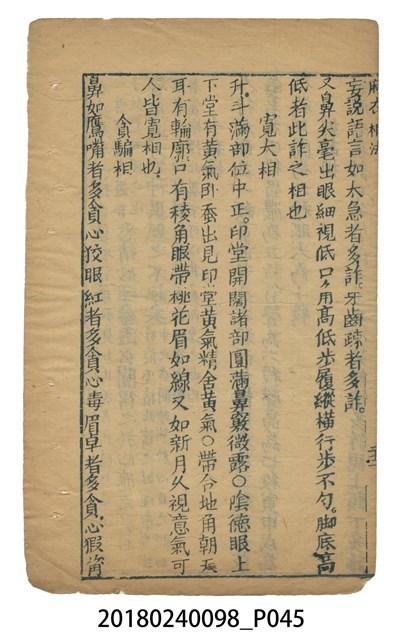 麻衣相法
妄説語言如太急者多詐牙齒疎者多詐。
又鼻尖毫出眼細視低口用高低步履縱橫行步不勻。脚底高
低者此詐之相也
寬大相
升斗滿部位中正。印堂開闊諸部圓滿鼻竅微露○陰德眼上
下堂有黃氣卧蚕出見印堂黃氣精舍黃氣○帶令地角朝
耳有輪廓口有稜角眼帶桃花眉如線又如新月久視意氣可
人皆寬相也
貪騙相
鼻如鷹嘴者多貪心狡眼紅者多貪心毒眉卓者多貪心
20180240098_P045